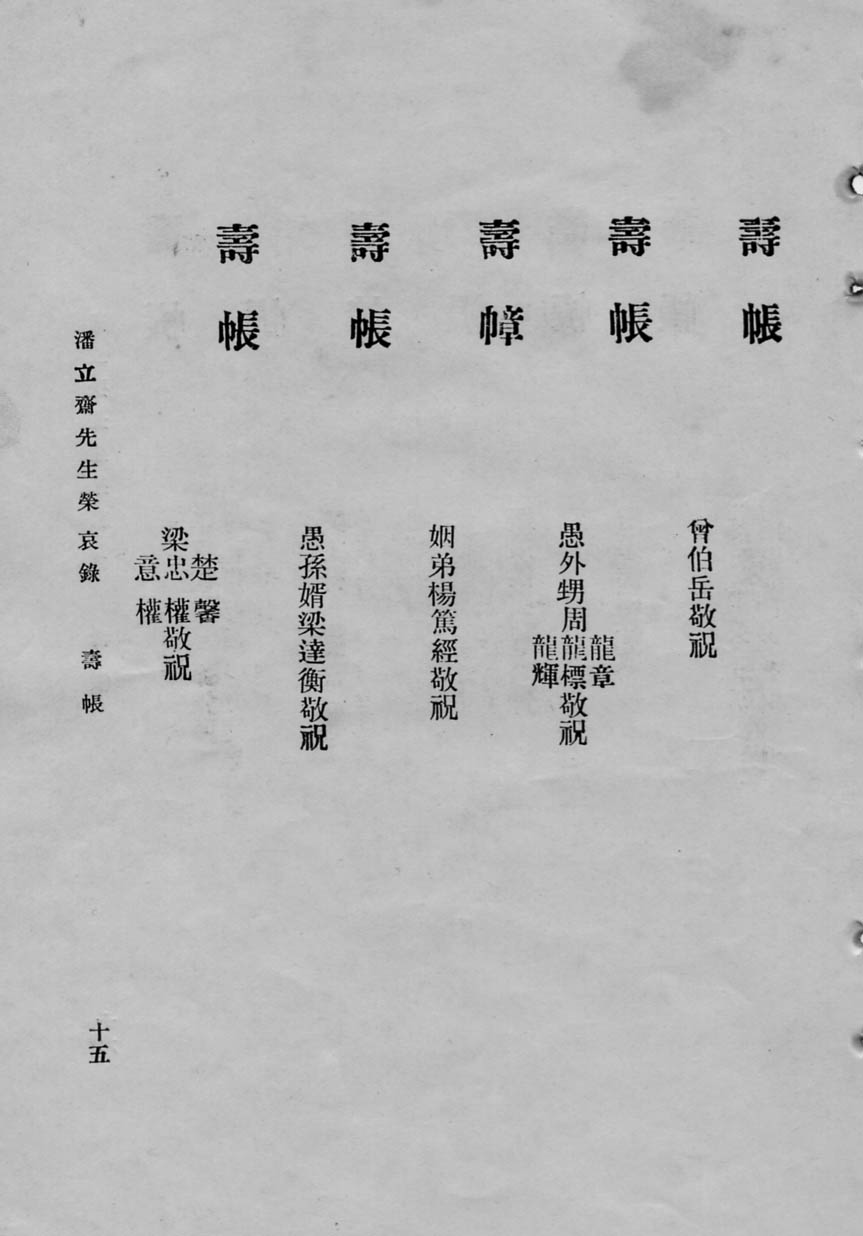 壽帳
曾伯岳敬祝
壽帳
龍章
愚外甥周龍標敬祝
龍輝
壽幛
姻弟楊篤經敬祝
壽帳
愚孫婿梁達衡敬祝
壽帳
楚馨
梁忠權敬祝
意權
潘立齋先生榮哀錄 壽帳
十五